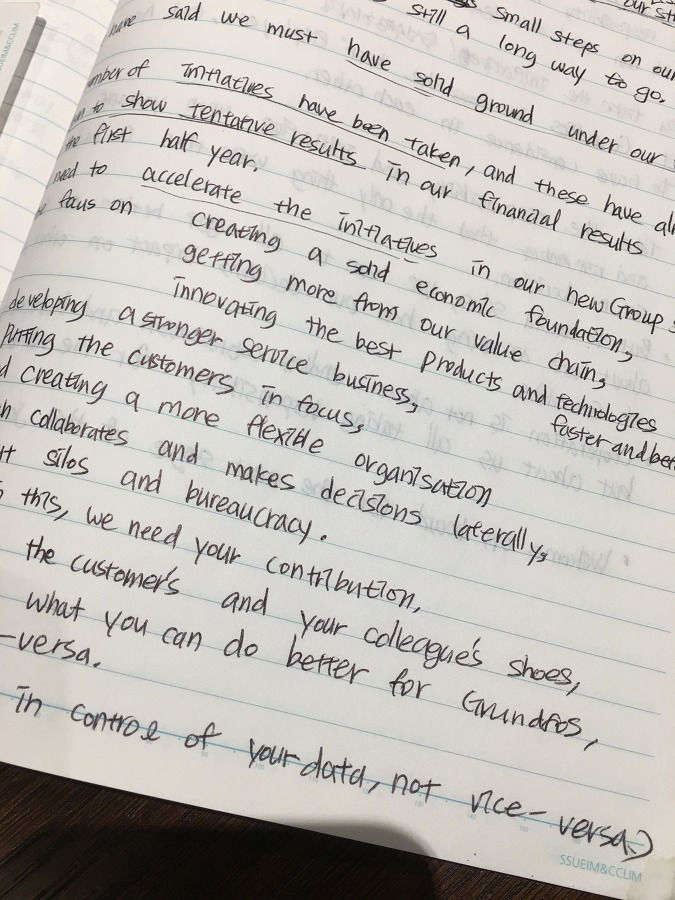 our st
small steps on our
still a long way to go.
have said we must have solid ground under our
mber of initiatives have been taken, and these have al
n to show tentative results in our financial results
the first half year.
need to accelerate the initiatives in our new Group s
focus on creating a solid economic foundation,
getting more from our value chain,
innovating the best products and technologies
faster and bet
developing a stronger service business,
putting the customers in focus,
d creating a more flexible organisation
h collaborates and makes decisions laterally,
t silos and bureaucracy.
this, we need your contribution,
the customer's and your colleague's shoes,
what you can do better for Grundfos,
-versa.
in control of your data, not vice-versa.)
SSUEIM&CCLIM